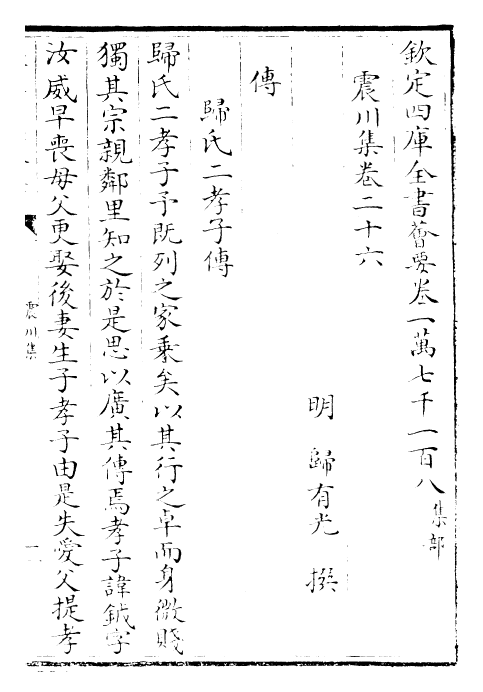 欽定四庫全書薈要卷一萬七千一百八集部
震川集卷二十六
明 歸有光 撰
傳
歸氏二孝子傳
歸氏二孝子予既列之家乘矣以其行之卓而身微賤
獨其宗親鄰里知之於是思以廣其傳焉孝子諱鉞字
汝威早喪母父更娶後妻生子孝子由是失愛父提孝
震川集
一